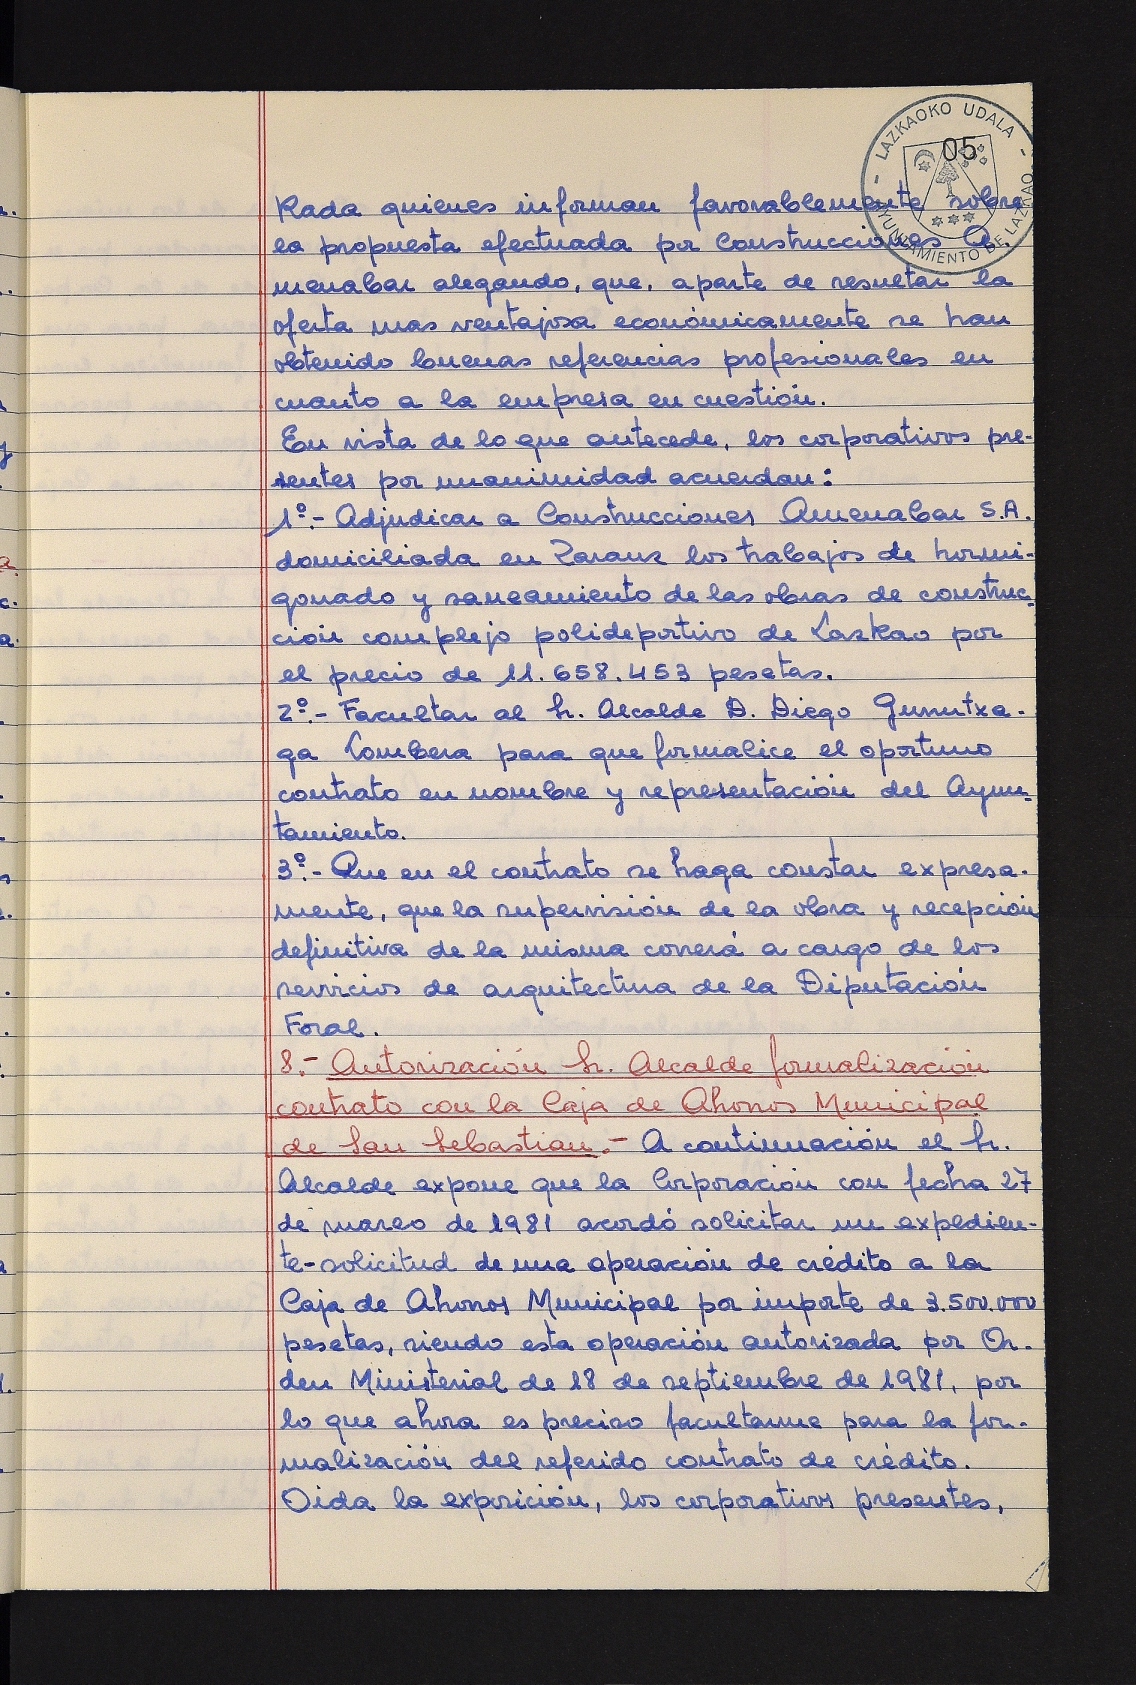 LAZKAOKO UDALA
AYUNTAMIENTO DE LAZKAO
05
Rada quienes informan favorablemente sobre
la propuesta efectuada por Construcciones A-
menabar alegando, que, aparte de resultar la
oferta mas ventajosa económicamente se han
obtenido buenas referencias profesionales en
cuanto a la empresa en cuestión.
En vista de lo que antecede, los corporativos pre-
sentes por unanimidad acuerdan:
1º.- Adjudicar a Construcciones Amenabar S.A.
domiciliada en Zarauz los trabajos de hormi-
gonado y saneamiento de las obras de construc-
ción complejo polideportivo de Lazkao por
el precio de 11.658.453 pesetas.
2º.- Facultar al Sr. Alcalde D. Diego Gurrutxa-
ga Lombera para que formalice el oportuno
contrato en nombre y representación del Ayun-
tamiento.
3º.- Que en el contrato se haga constar expresa-
mente, que la supervisión de la obra y recepción
definitiva de la misma correrá a cargo de los
servicios de arquitectura de la Diputación
Foral.
8.- Autorización Sr. Alcalde formalización
contrato con la Caja de Ahorros Municipal
de San Sebastian.- A continuación el Sr.
Alcalde expone que la Corporación con fecha 27
de marzo de 1981 acordó solicitar un expedien-
te-solicitud de una operación de crédito a la
Caja de Ahorros Municipal por importe de 3.500.000
pesetas, siendo esta operación autorizada por Or-
den Ministerial de 18 de septiembre de 1981, por
lo que ahora es preciso facultarme para la for-
malización del referido contrato de crédito.
Oida la exposición, los corporativos presentes,